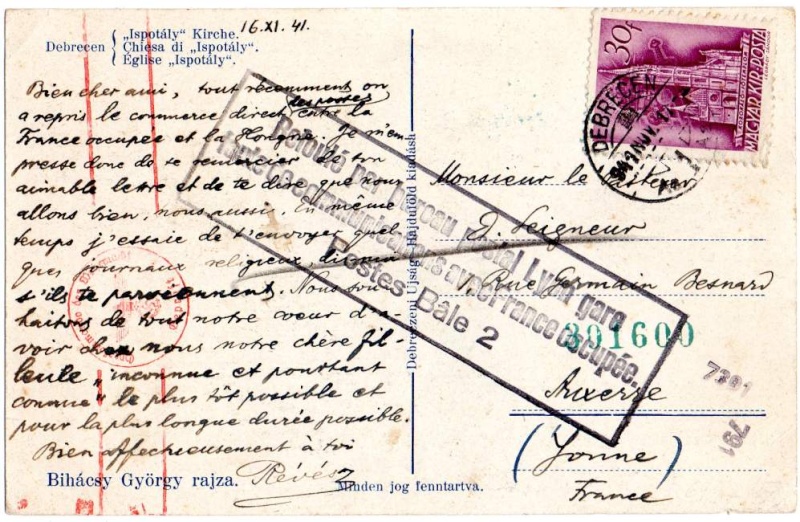 16.XI.41.
Debrecen
„Ispotály” Kirche.
Chiesa di „Ispotály”.
Église „Ispotály”.
Bien cher ami, tout récemment on
a repris le commerce direct des postes entre la
France occupée et la Hongrie. Je m'em-
presse donc de te remercier de ton
aimable lettre et de te dire que nous
allons bien, nous aussi. En même
temps j'essaie de t'envoyer quel-
ques journaux religieux, dis-moi
s'ils te parviennent. Nous sou-
haitons de tout notre cœur d'a-
voir chez nous notre chère fil-
leule „inconnue et pourtant
connue” le plus tôt possible et
pour la plus longue durée possible.
Bien affectueusement à toi
Révész
Bihácsy György rajza.
Minden jog fenntartva.
Debreczeni Ujság-Hajdúföld kiadása
30f
MAGYAR KIR. POSTA
DEBRECEN
Refoulé par bureau postal Lyon gare
faute de communications avec France occupée.
Postes Bâle 2
Monsieur le Pasteur
D. Seigneur
Rue Germain Besnard
391600
7391
791
Auxerre
(Yonne)
France